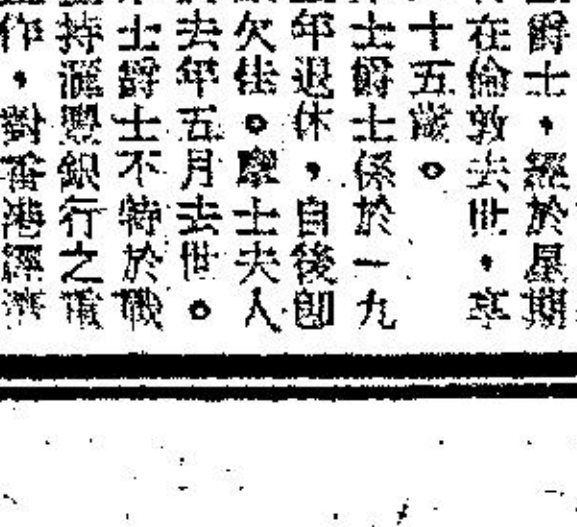 爵士，經於星期
在倫敦去世，享
十五歲。
士爵士係於一九
年退休，自後即
欠佳。摩士夫人
去年五月去世。
士爵士不特於戰
持滙豐銀行之重
作，對香港經濟